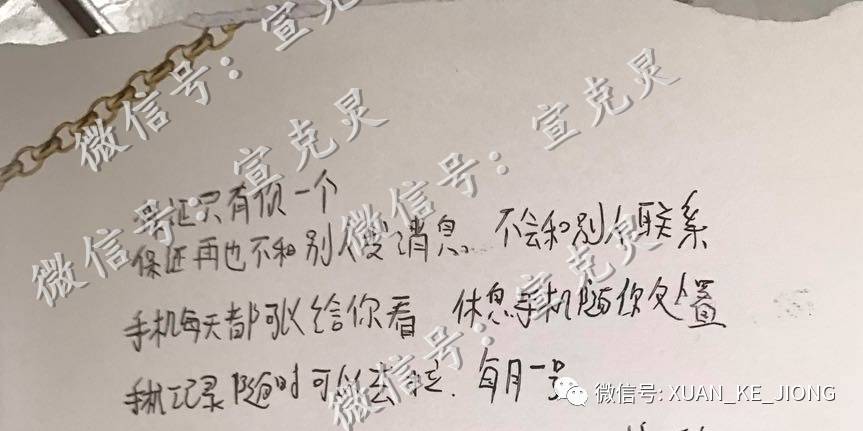 保证只有你一个
保证再也不和别人发消息 不会和别人联系
手机每天都可以给你看 休息手机随你处置
手机记录随时可以去拉.每月一号
微信号:宣克灵
微信号:宣克灵
微信号:宣克灵
微信号:宣克灵
微信号: XUAN_KE_JIONG